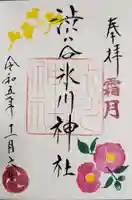 奉拝
霜月
渋谷氷川神社
令和五年十一月